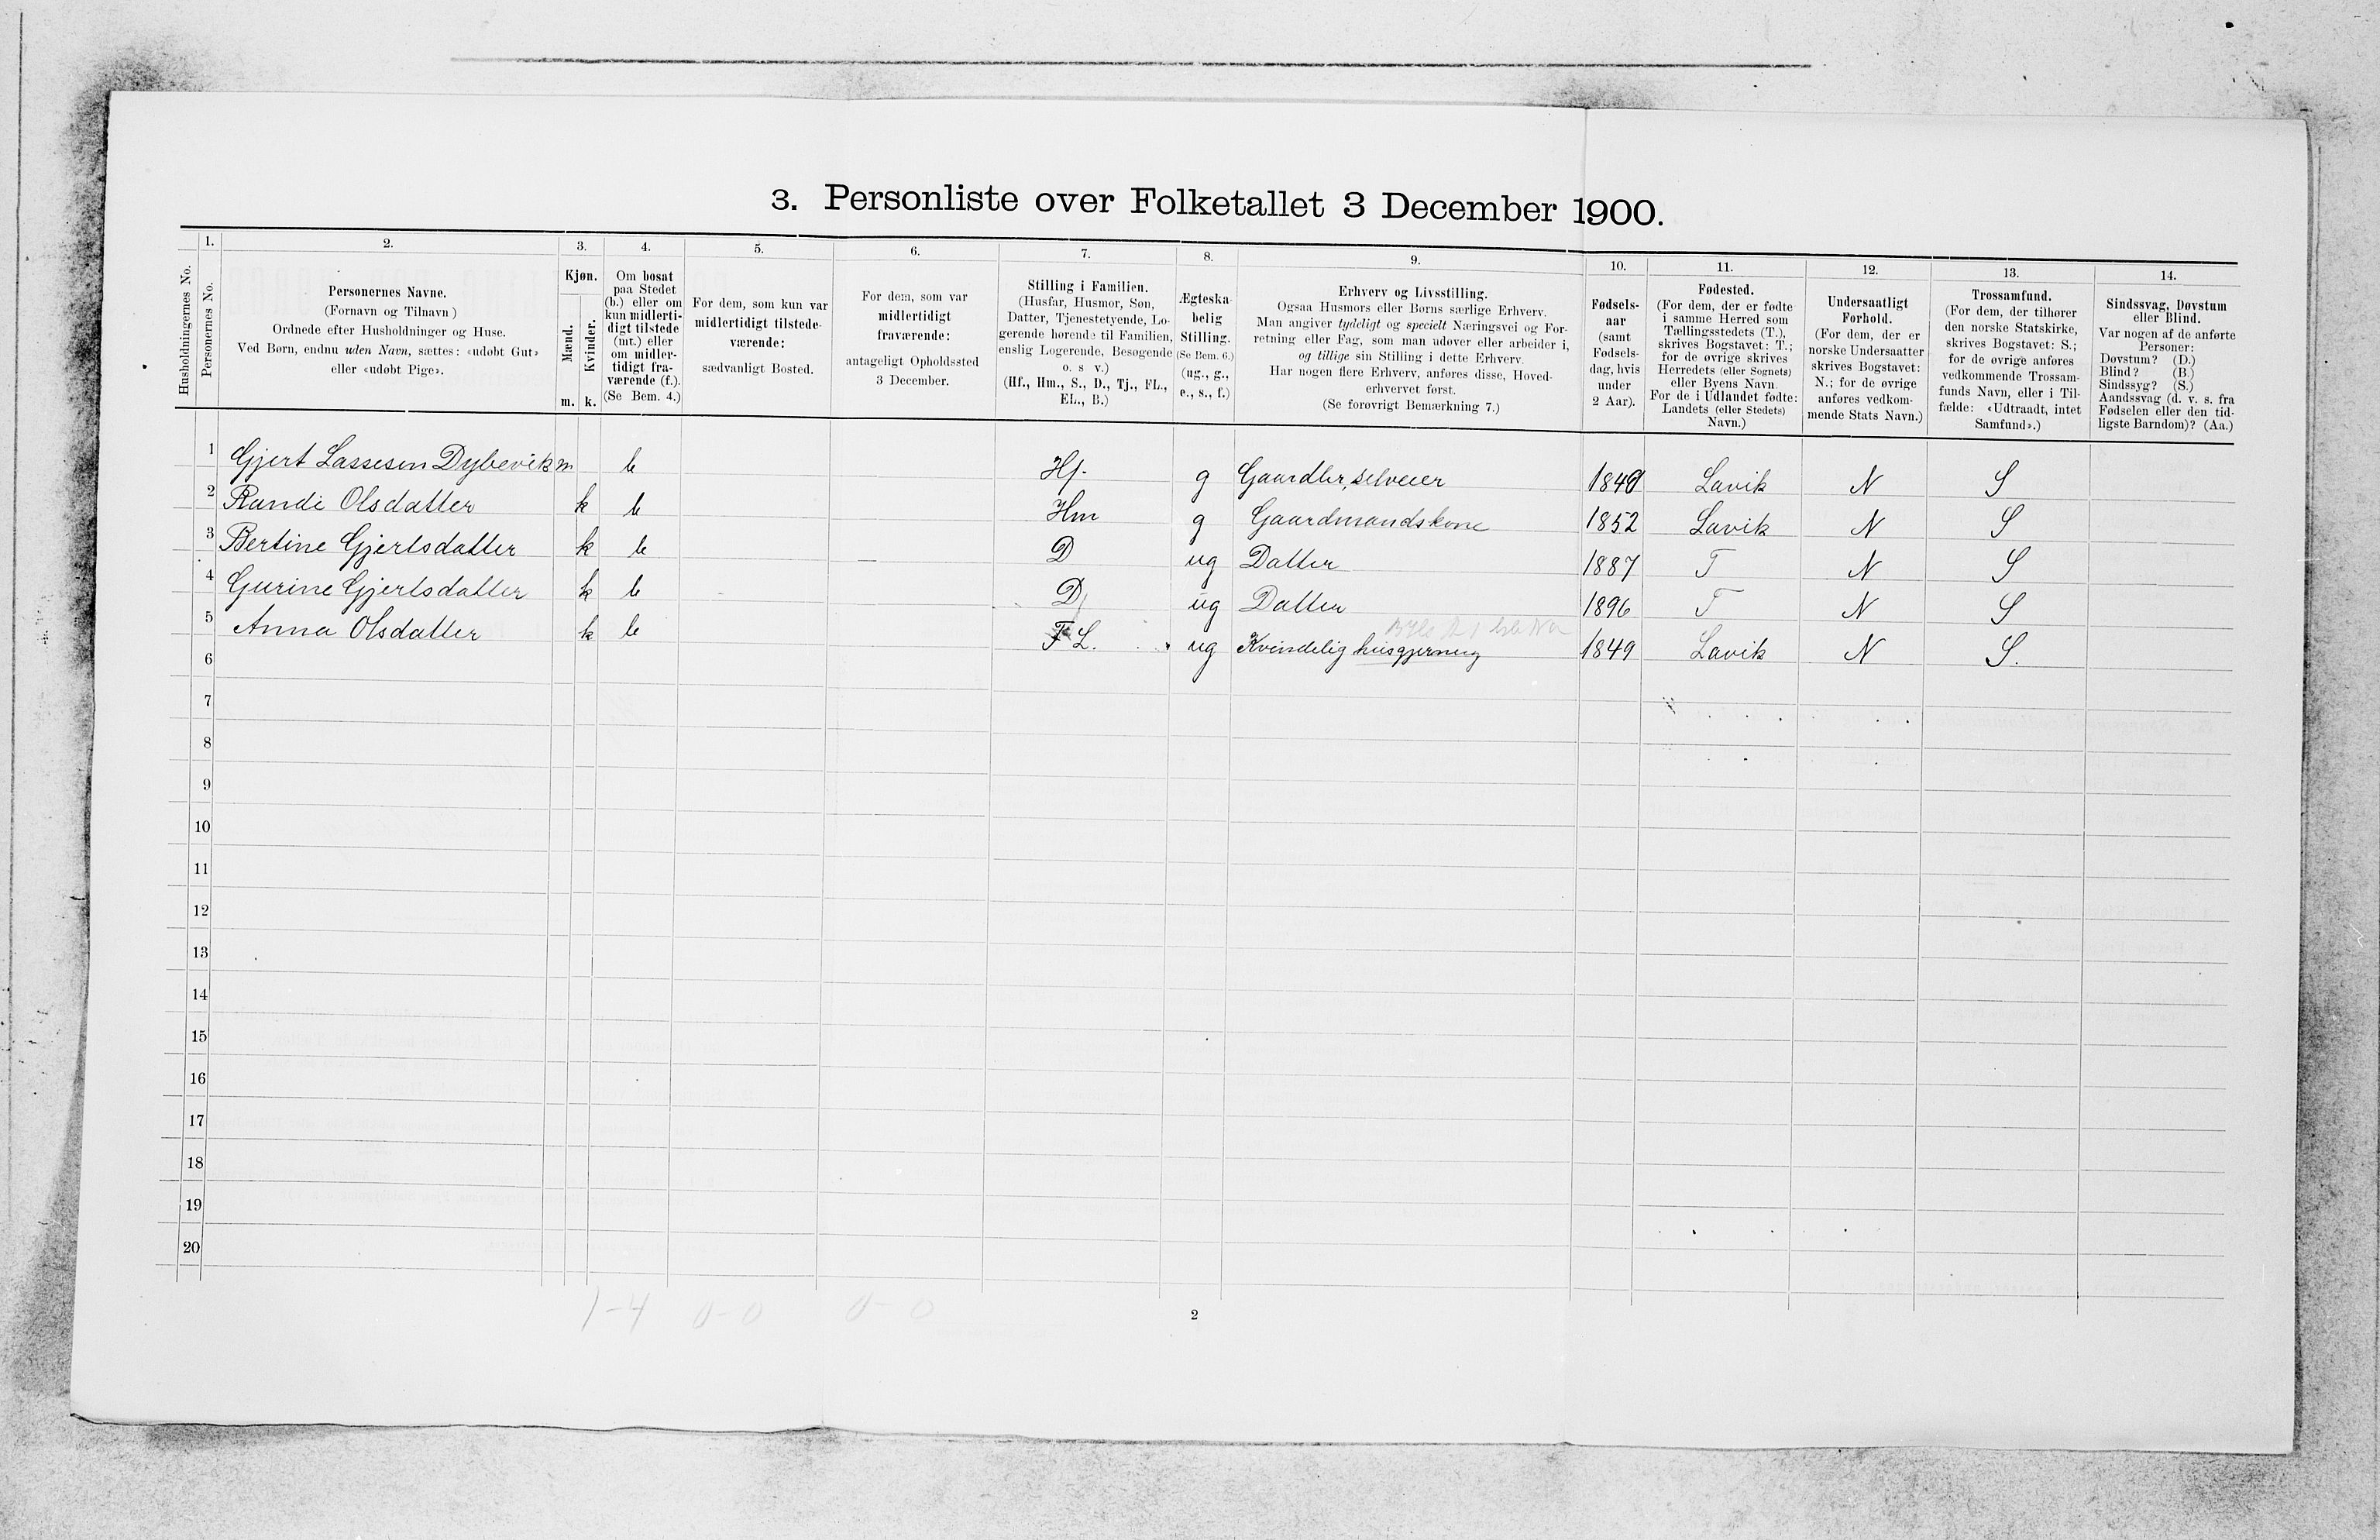 3. Personliste over Folketallet 3 December 1900.
1. 2. 3. 4. 5. 6. 7. 8. 9. 10. 11. 12. 13. 14.
Husholdningernes No.
Personernes No.
Personernes Navne.
(Fornavn og Tilnavn)
Ordnede efter Husholdninger og Huse.
Ved Børn, endnu uden Navn, sættes: «udøbt Gut»
eller «udøbt Pige».
Kjøn.
Mænd.
Kvinder.
m. k.
Om bosat
paa Stedet
(b.) eller om
kun midlerti-
digt tilstede
(mt.) eller
om midler-
tidigt fra-
værende (f.).
(Se Bem. 4.)
For dem, som kun var
midlertidigt tilstede-
værende:
sædvanligt Bosted.
For dem, som var
midlertidigt
fraværende:
antageligt Opholdssted
3 December.
Stilling i Familien.
(Husfar, Husmor, Søn,
Datter, Tjenestetyende, Lo-
gerende hørende til Familien,
enslig Logerende, Besøgende
o. s v.)
(Hf., Hm., S., D., Tj., FL.,
EL., B.)
Ægteska-
belig
Stilling.
(Se Bem. 6.)
(ug., g.,
e., s., f.)
Erhverv og Livsstilling.
Ogsaa Husmors eller Børns særlige Erhverv.
Man angiver tydeligt og specielt Næringsvei og For-
retning eller Fag, som man udøver eller arbeider i,
og tillige sin Stilling i dette Erhverv.
Har nogen flere Erhverv, anføres disse, Hoved-
erhvervet først.
(Se forøvrigt Bemærkning 7.)
Fødsels-
aar
(samt
Fødsels-
dag, hvis
under
2 Aar).
Fødested.
(For dem, der er fødte
i samme Herred som
Tællingsstedets (T.),
skrives Bogstavet: T.;
for de øvrige skrives
Herredets (eller Sognets)
eller Byens Navn.
For de i Udlandet fødte:
Landets (eller Stedets)
Navn.)
Undersaatligt
Forhold.
(For dem, der er
norske Undersaatter
skrives Bogstavet:
N.; for de øvrige
anføres vedkom-
mende Stats Navn.)
Trossamfund.
(For dem, der tilhører
den norske Statskirke,
skrives Bogstavet: S.;
for de øvrige anføres
vedkommende Trossam-
funds Navn, eller i Til-
fælde: «Udtraadt, intet
Samfund».)
Sindssvag, Døvstum
eller Blind.
Var nogen af de anførte
Personer:
Døvstum? (D.)
Blind? (B.)
Sindssyg? (S.)
Aandssvag (d. v. s. fra
Fødselen eller den tid-
ligste Barndom)? (Aa.)
1 Gjert Lassesen Dybevik m b Hf. g Gaardbr, selveier 1849 Lavik N S
2 Randi Olsdatter k b Hm g Gaardmandskone 1852 Lavik N S
3 Bertine Gjertsdatter k b D ug Datter 1887 T N S
4 Gurine Gjertsdatter k b D ug Datter 1896 T N S
5 Anna Olsdatter k b F L. ug Kvindelig husgjerning 1849 Lavik N S.
6
7
8
9
10
11
12
13
14
15
16
17
18
19
20
1-4 0-0 0-0
2